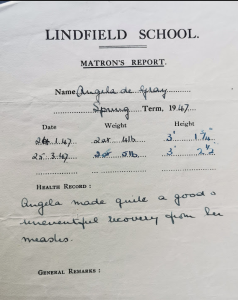 LINDFIELD SCHOOL.
MATRON'S REPORT.
Name Angela de Gray
Spring Term, 1947
Date Weight Height
1.47 2st 4lb 3' 1¾"
25.3.47 2st 5lb 3' 2½
HEALTH RECORD:
Angela made quite a good &
uneventful recovery from her
measles.
GENERAL REMARKS: